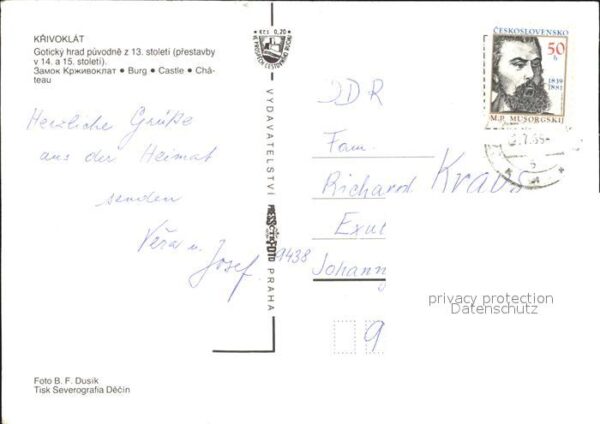 KŘIVOKLÁT
Gotický hrad původně z 13. století (přestavby
v 14. a 15. století).
Замок Крживоклат ● Burg ● Castle ● Châ-
teau
Herzliche Grüße
aus der Heimat
senden
Věra u.
Josef
Foto B. F. Dusík
Tisk Severografia Děčín
Kčs 0,20
VYDAVATELSTVÍ PRESSFOTO PRAHA
9438
ČESKOSLOVENSKO
50
h
1839
1881
M.P. MUSORGSKIJ
DDR
Fam.
Richard Kraus
Exut
Johann
9
privacy protection
Datenschutz